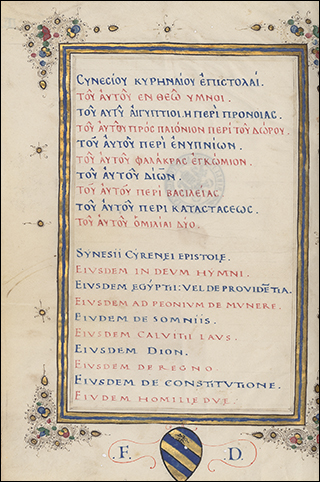 Συνεσίου κυρηναίου ἐπιστολαί.
τοῦ αὐτοῦ ἐν θεῶ ὕμνοι.
τοῦ αὐτοῦ αἰγύπτιοι. ἢ περὶ προνοίας.
τοῦ αὐτοῦ πρὸς παιόνιον περὶ τοῦ δώρου.
τοῦ αὐτοῦ περὶ ἐνυπνίων.
τοῦ αὐτοῦ φαλάκρας ἐγκώμιον.
τοῦ αὐτοῦ δίων.
τοῦ αὐτοῦ περὶ βασιλείας.
τοῦ αὐτοῦ περὶ καταστάσεως.
τοῦ αὐτοῦ ὁμιλίαι δύο.
SYNESII CYRENEI EPISTOLE.
EIUSDEM IN DEUM HYMNI.
EIUSDEM EGYPTII: VEL DE PROVIDĒTIA.
EIUSDEM AD PEONIUM DE MUNERE.
EIUDEM DE SOMNIIS.
EIUSDEM CALVITII LAUS.
EIUSDEM DION.
EIUSDEM DE REGNO.
EIUSDEM DE CONSTITUTIONE.
EIUDEM HOMILIE DUE.
.F. .D.